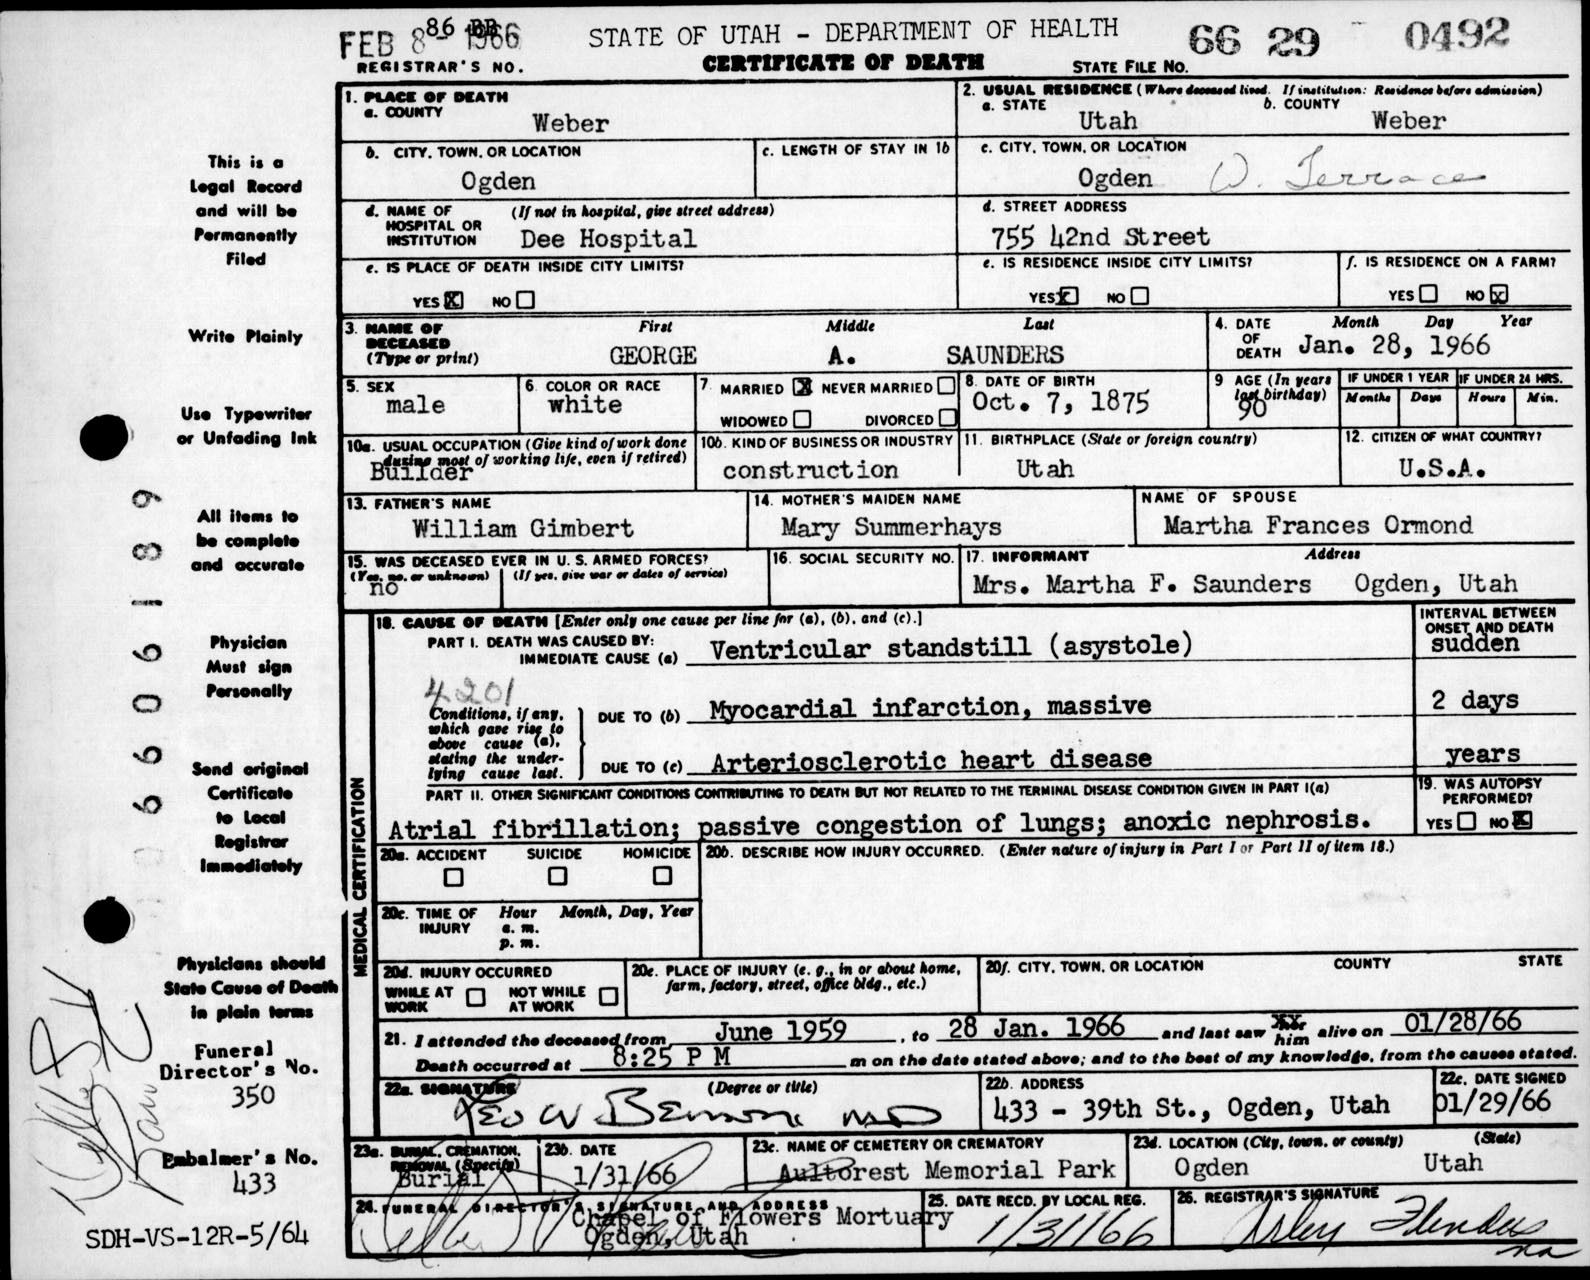 FEB 8 - 1966
86 BB
STATE OF UTAH - DEPARTMENT OF HEALTH
66 29 0492
REGISTRAR'S NO.
CERTIFICATE OF DEATH
STATE FILE NO.
This is a
Legal Record
and will be
Permanently
Filed
Write Plainly
Use Typewriter
or Unfading Ink
All items to
be complete
and accurate
Physician
Must sign
Personally
Send original
Certificate
to Local
Registrar
Immediately
Physicians should
State Cause of Death
in plain terms
Funeral
Director's No.
350
Embalmer's No.
433
SDH-VS-12R-5/64
66 06189
1. PLACE OF DEATH
a. COUNTY
Weber
2. USUAL RESIDENCE (Where deceased lived. If institution: Residence before admission)
a. STATE
Utah
b. COUNTY
Weber
b. CITY, TOWN, OR LOCATION
Ogden
c. LENGTH OF STAY IN 1b
c. CITY, TOWN, OR LOCATION
Ogden W. Terrace
d. NAME OF HOSPITAL OR INSTITUTION
(If not in hospital, give street address)
Dee Hospital
d. STREET ADDRESS
755 42nd Street
e. IS PLACE OF DEATH INSIDE CITY LIMITS?
YES X NO
e. IS RESIDENCE INSIDE CITY LIMITS?
YES X NO
f. IS RESIDENCE ON A FARM?
YES NO X
3. NAME OF DECEASED
(Type or print)
First Middle Last
GEORGE A. SAUNDERS
4. DATE OF DEATH
Month Day Year
Jan. 28, 1966
5. SEX
male
6. COLOR OR RACE
white
7. MARRIED X NEVER MARRIED
WIDOWED DIVORCED
8. DATE OF BIRTH
Oct. 7, 1875
9 AGE (In years last birthday)
90
IF UNDER 1 YEAR
Months Days
IF UNDER 24 HRS.
Hours Min.
10a. USUAL OCCUPATION (Give kind of work done during most of working life, even if retired)
Builder
10b. KIND OF BUSINESS OR INDUSTRY
construction
11. BIRTHPLACE (State or foreign country)
Utah
12. CITIZEN OF WHAT COUNTRY?
U.S.A.
13. FATHER'S NAME
William Gimbert
14. MOTHER'S MAIDEN NAME
Mary Summerhays
NAME OF SPOUSE
Martha Frances Ormond
15. WAS DECEASED EVER IN U. S. ARMED FORCES?
(Yes, no, or unknown) (If yes, give war or dates of service)
no
16. SOCIAL SECURITY NO.
17. INFORMANT Address
Mrs. Martha F. Saunders Ogden, Utah
MEDICAL CERTIFICATION
18. CAUSE OF DEATH [Enter only one cause per line for (a), (b), and (c).]
INTERVAL BETWEEN ONSET AND DEATH
PART I. DEATH WAS CAUSED BY:
IMMEDIATE CAUSE (a) Ventricular standstill (asystole)
sudden
4201
Conditions, if any,
which gave rise to
above cause (a),
stating the under-
lying cause last.
DUE TO (b) Myocardial infarction, massive
2 days
DUE TO (c) Arteriosclerotic heart disease
years
PART II. OTHER SIGNIFICANT CONDITIONS CONTRIBUTING TO DEATH BUT NOT RELATED TO THE TERMINAL DISEASE CONDITION GIVEN IN PART I(a)
Atrial fibrillation; passive congestion of lungs; anoxic nephrosis.
19. WAS AUTOPSY PERFORMED?
YES NO X
20a. ACCIDENT SUICIDE HOMICIDE
20b. DESCRIBE HOW INJURY OCCURRED. (Enter nature of injury in Part I or Part II of item 18.)
20c. TIME OF INJURY
Hour Month, Day, Year
a. m.
p. m.
20d. INJURY OCCURRED
WHILE AT WORK NOT WHILE AT WORK
20e. PLACE OF INJURY (e. g., in or about home, farm, factory, street, office bldg., etc.)
20f. CITY, TOWN, OR LOCATION COUNTY STATE
21. I attended the deceased from June 1959, to 28 Jan. 1966 and last saw him alive on 01/28/66
Death occurred at 8:25 P M m on the date stated above; and to the best of my knowledge, from the causes stated.
22a. SIGNATURE (Degree or title)
Leo W Benson MD
22b. ADDRESS
433 - 39th St., Ogden, Utah
22c. DATE SIGNED
01/29/66
23a. BURIAL, CREMATION, REMOVAL (Specify)
Burial
23b. DATE
1/31/66
23c. NAME OF CEMETERY OR CREMATORY
Aultorest Memorial Park
23d. LOCATION (City, town, or county) (State)
Ogden Utah
24. FUNERAL DIRECTOR'S SIGNATURE AND ADDRESS
Chapel of Flowers Mortuary
Ogden, Utah
25. DATE RECD. BY LOCAL REG.
1/31/66
26. REGISTRAR'S SIGNATURE